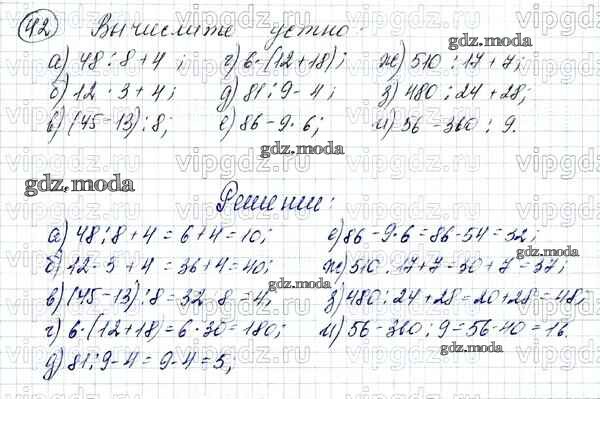 42 Вычислите устно:
а) 48 : 8 + 4 ; г) 6 · (12 + 18); ж) 510 : 17 + 7;
б) 12 · 3 + 4; д) 81 : 9 - 4; з) 480 : 24 + 28;
в) (45 - 13) : 8; е) 86 - 9 · 6; и) 56 - 360 : 9.
Решение:
а) 48 : 8 + 4 = 6 + 4 = 10; е) 86 - 9 · 6 = 86 - 54 = 32;
б) 12 · 3 + 4 = 36 + 4 = 40; ж) 510 : 17 + 7 = 30 + 7 = 37;
в) (45 - 13) : 8 = 32 : 8 = 4; з) 480 : 24 + 28 = 20 + 28 = 48;
г) 6 · (12 + 18) = 6 · 30 = 180; и) 56 - 360 : 9 = 56 - 40 = 16.
д) 81 : 9 - 4 = 9 - 4 = 5;
gdz.moda
vipgdz.ru